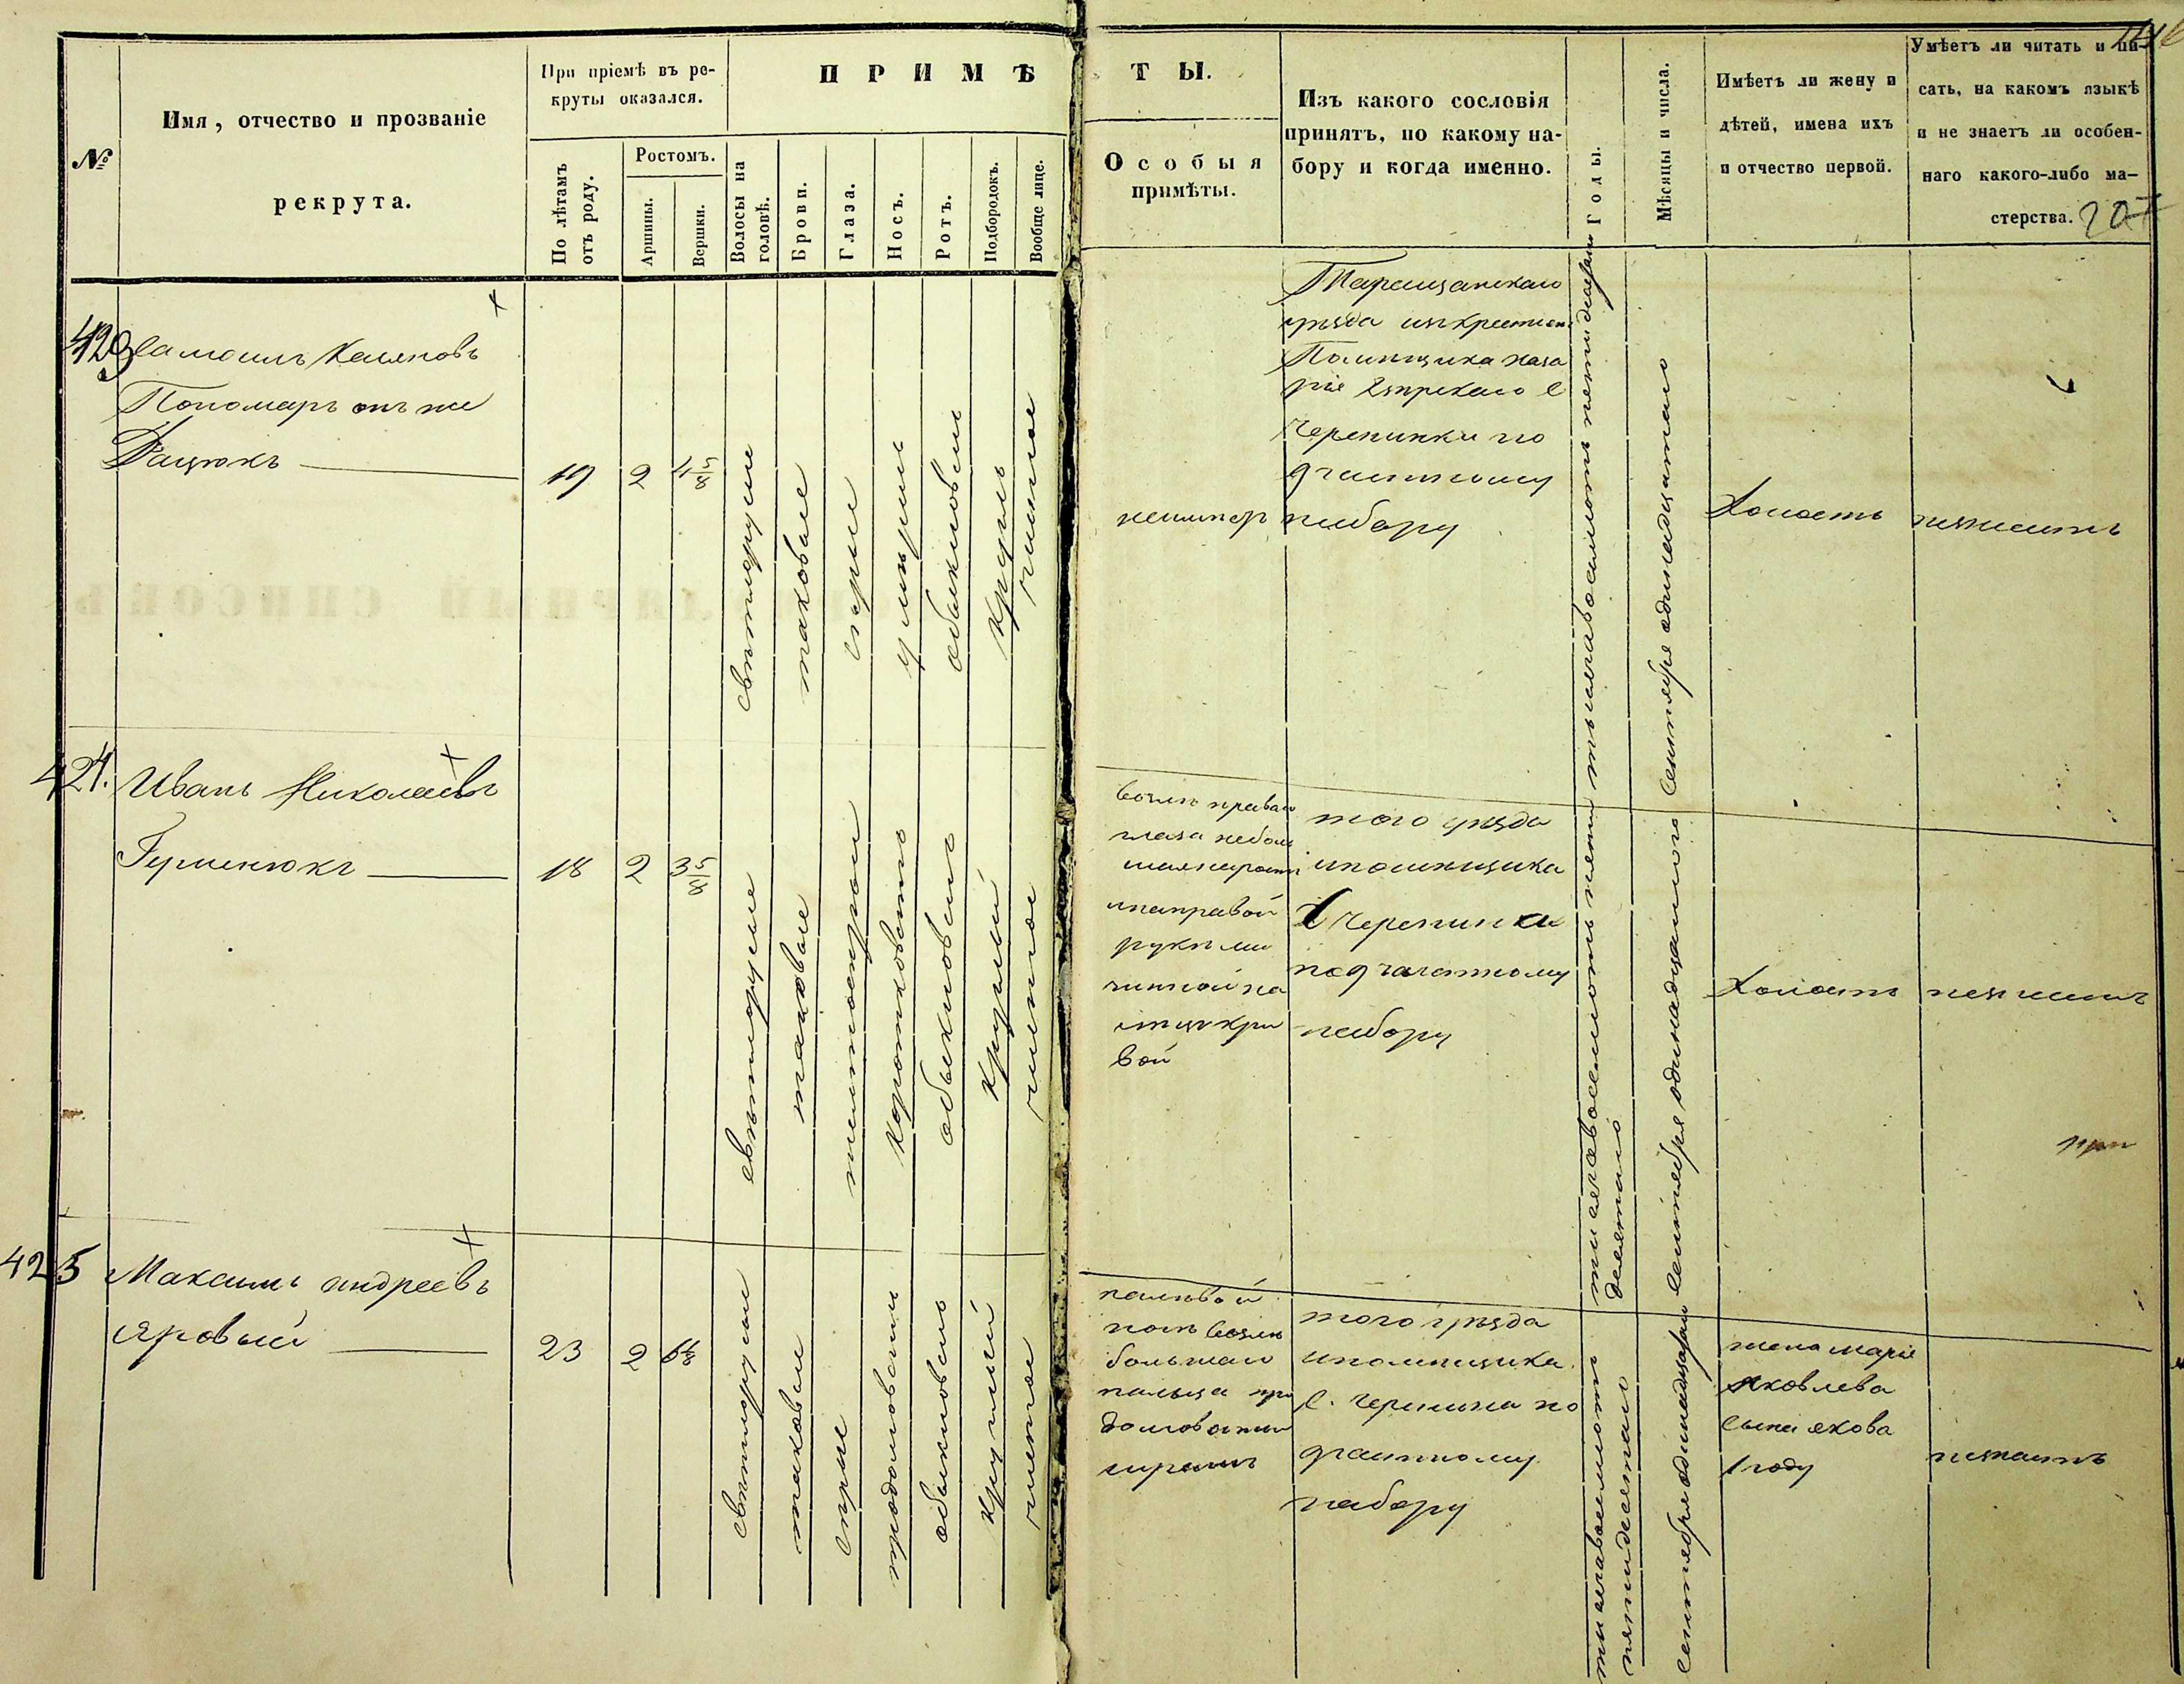 №
Имя, отчество и прозваніе
рекрута.
При пріемѣ въ ре-
круты оказался.
По лѣтамъ
отъ роду.
Ростомъ.
Аршины.
Вершки.
ПРИМѢ
Волосы на
головѣ.
Брови.
Глаза.
Носъ.
Ротъ.
Подбородокъ.
Вообще лице.
ТЫ.
Особыя
примѣты.
Изъ какого сословія
принятъ, по какому на-
бору и когда именно.
Годы.
Мѣсяцы и числа.
Имѣетъ ли жену и
дѣтей, имена ихъ
и отчество первой.
Умѣетъ ли читать и пи-
сать, на какомъ языкѣ
и не знаетъ ли особен-
наго какого-либо ма-
стерства.
423
Самоилъ
Пономарь онъ же
Дацюкъ
19
2
4 5/8
свѣтлорусые
таковые
сѣрые
умѣрен
обыкновен
круглъ
чистое
неимѣр
Таращанского
уѣзда изъ крестьян
Помѣщика
с
Черепинки по
9 частному
набору
тысяча восемьсотъ пятидесят
сентября одинадцатаго
Холостъ
незнаитъ
424.
Иванъ Николаевъ
18
2
3 5/8
свѣтлорусые
таковые
желтосѣрыи
коротковатъ
обыкновенъ
круглый
чистое
возлѣ праваго
глаза небол
и на правой
рукѣ ми
зинной па
лецъ кри
вой
того уѣзда
и помѣщика
С Черепинки
по 9 частному
набору
тысяча восемьсотъ пяти
десятаго
сентября одинадцатого
Холостъ
незнаитъ
425
Максимъ Андреевъ
Яровый
23
2
свѣтлорусые
таковые
сѣрые
продолговатъ
обыкновенъ
круглый
чистое
на лѣвой
ногѣ возлѣ
большаго
пальца
долговатый
шрамъ
того уѣзда
и помѣщика
с. Черепина по
9 частному
набору
тысяча восемьсотъ
пятидесятаго
сентября одинадцатаго
жена Марія
Яковлева
сынъ Якова
1 году
незнаитъ